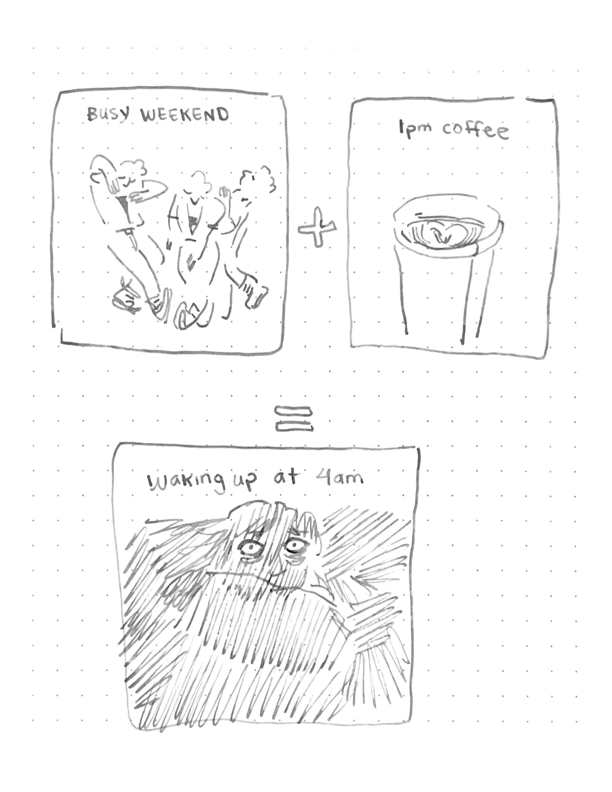 BUSY WEEKEND
1pm coffee
+
=
Waking up at 4am